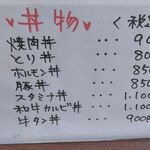 ♥丼物♥ く税
焼肉丼 … 90
とり丼 … 80
ホルモン丼 … 850
豚丼 … 850
スタミナ丼 … 1.100
和牛カルビ丼 … 1.100
牛タン丼 … 900円